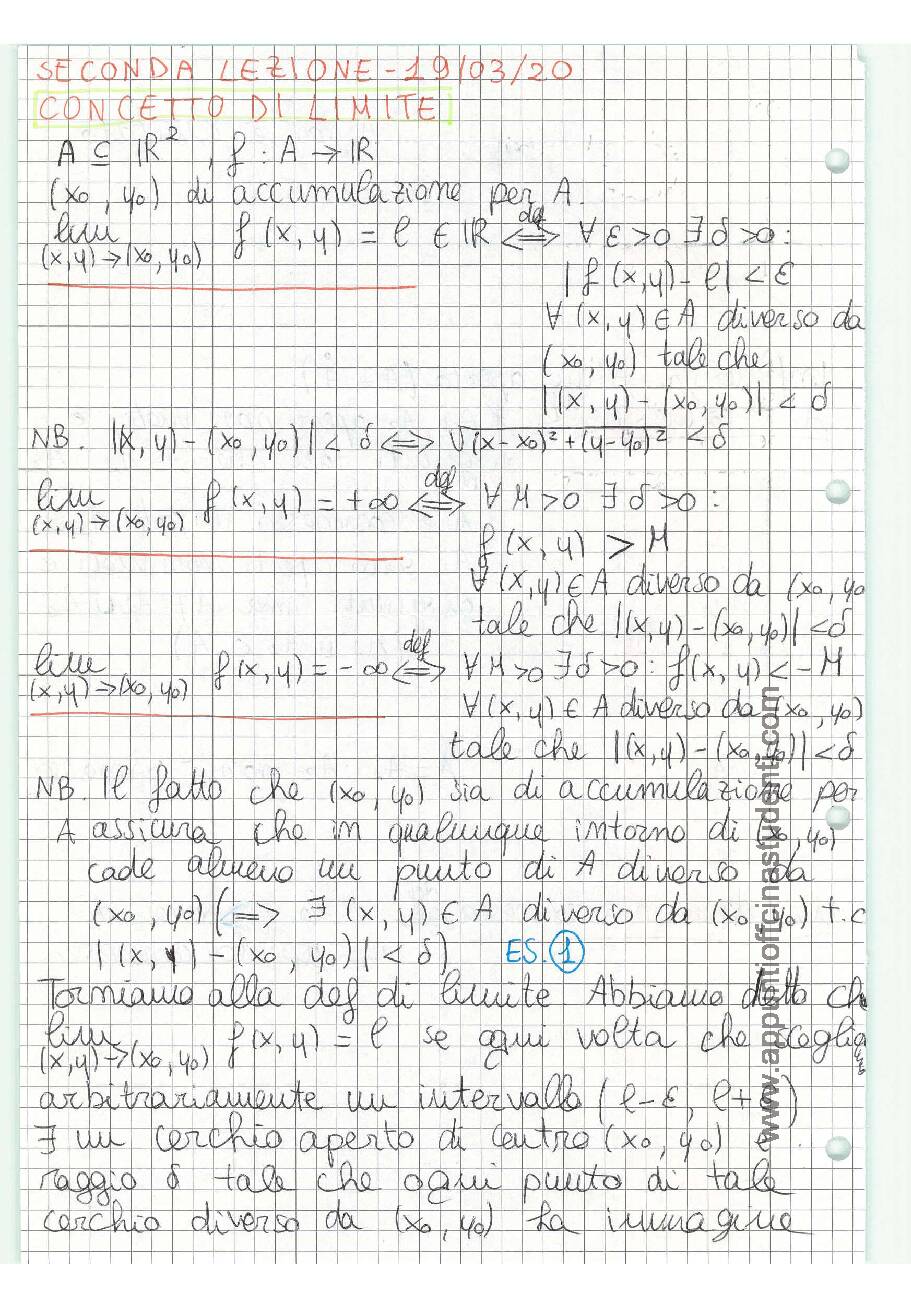 SECONDA LEZIONE - 19/03/20
CONCETTO DI LIMITE
A ⊆ ℝ², f : A → ℝ
(x₀, y₀) di accumulazione per A.
lim f(x, y) = l ∈ ℝ ⟺ def ∀ ε > 0 ∃ δ > 0 :
(x,y) → (x₀, y₀)
|f(x,y) - l| < ε
∀ (x, y) ∈ A diverso da
(x₀, y₀) tale che
|(x, y) - (x₀, y₀)| < δ
NB. |(x, y) - (x₀, y₀)| < δ ⟺ √(x-x₀)² + (y-y₀)² < δ
lim f(x, y) = +∞ ⟺ def ∀ M > 0 ∃ δ > 0 :
(x,y) → (x₀, y₀)
f(x, y) > M
∀ (x,y) ∈ A diverso da (x₀, y₀
tale che |(x,y) - (x₀,y₀)| < δ
lim f(x, y) = -∞ ⟺ def ∀ M > 0 ∃ δ > 0 : f(x, y) < -M
(x,y) → (x₀, y₀)
∀ (x, y) ∈ A diverso da (x₀, y₀)
tale che |(x,y) - (x₀, y₀)| < δ
NB Il fatto che (x₀, y₀) sia di accumulazione per
A assicura che in qualunque intorno di (x₀, y₀)
cade almeno un punto di A diverso da
(x₀, y₀) (⟹ ∃ (x, y) ∈ A diverso da (x₀, y₀) t.c
|(x, y) - (x₀, y₀)| < δ) ES. 1
Torniamo alla def di limite Abbiamo detto che
lim f(x, y) = l se ogni volta che
(x,y) → (x₀, y₀)
arbitrariamente un intervallo (l-ε, l+ε)
∃ un cerchio aperto di centro (x₀, y₀) e
raggio δ tale che ogni punto di tale
cerchio diverso da (x₀, y₀) ha immagine
www.appuntiofficinastudenti.com